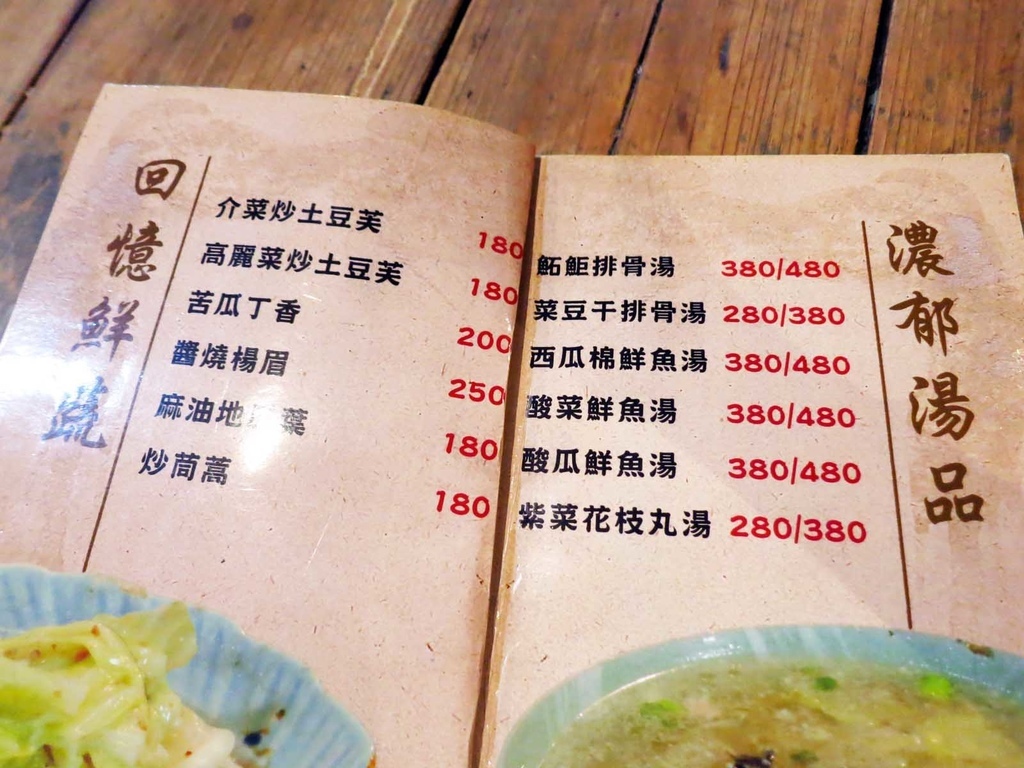 回憶鮮蔬
介菜炒土豆芙 180
高麗菜炒土豆芙 180
苦瓜丁香 200
醬燒楊眉 250
麻油地 葉 180
炒茼蒿 180
濃郁湯品
鮖鮔排骨湯 380/480
菜豆干排骨湯 280/380
西瓜棉鮮魚湯 380/480
酸菜鮮魚湯 380/480
酸瓜鮮魚湯 380/480
紫菜花枝丸湯 280/380